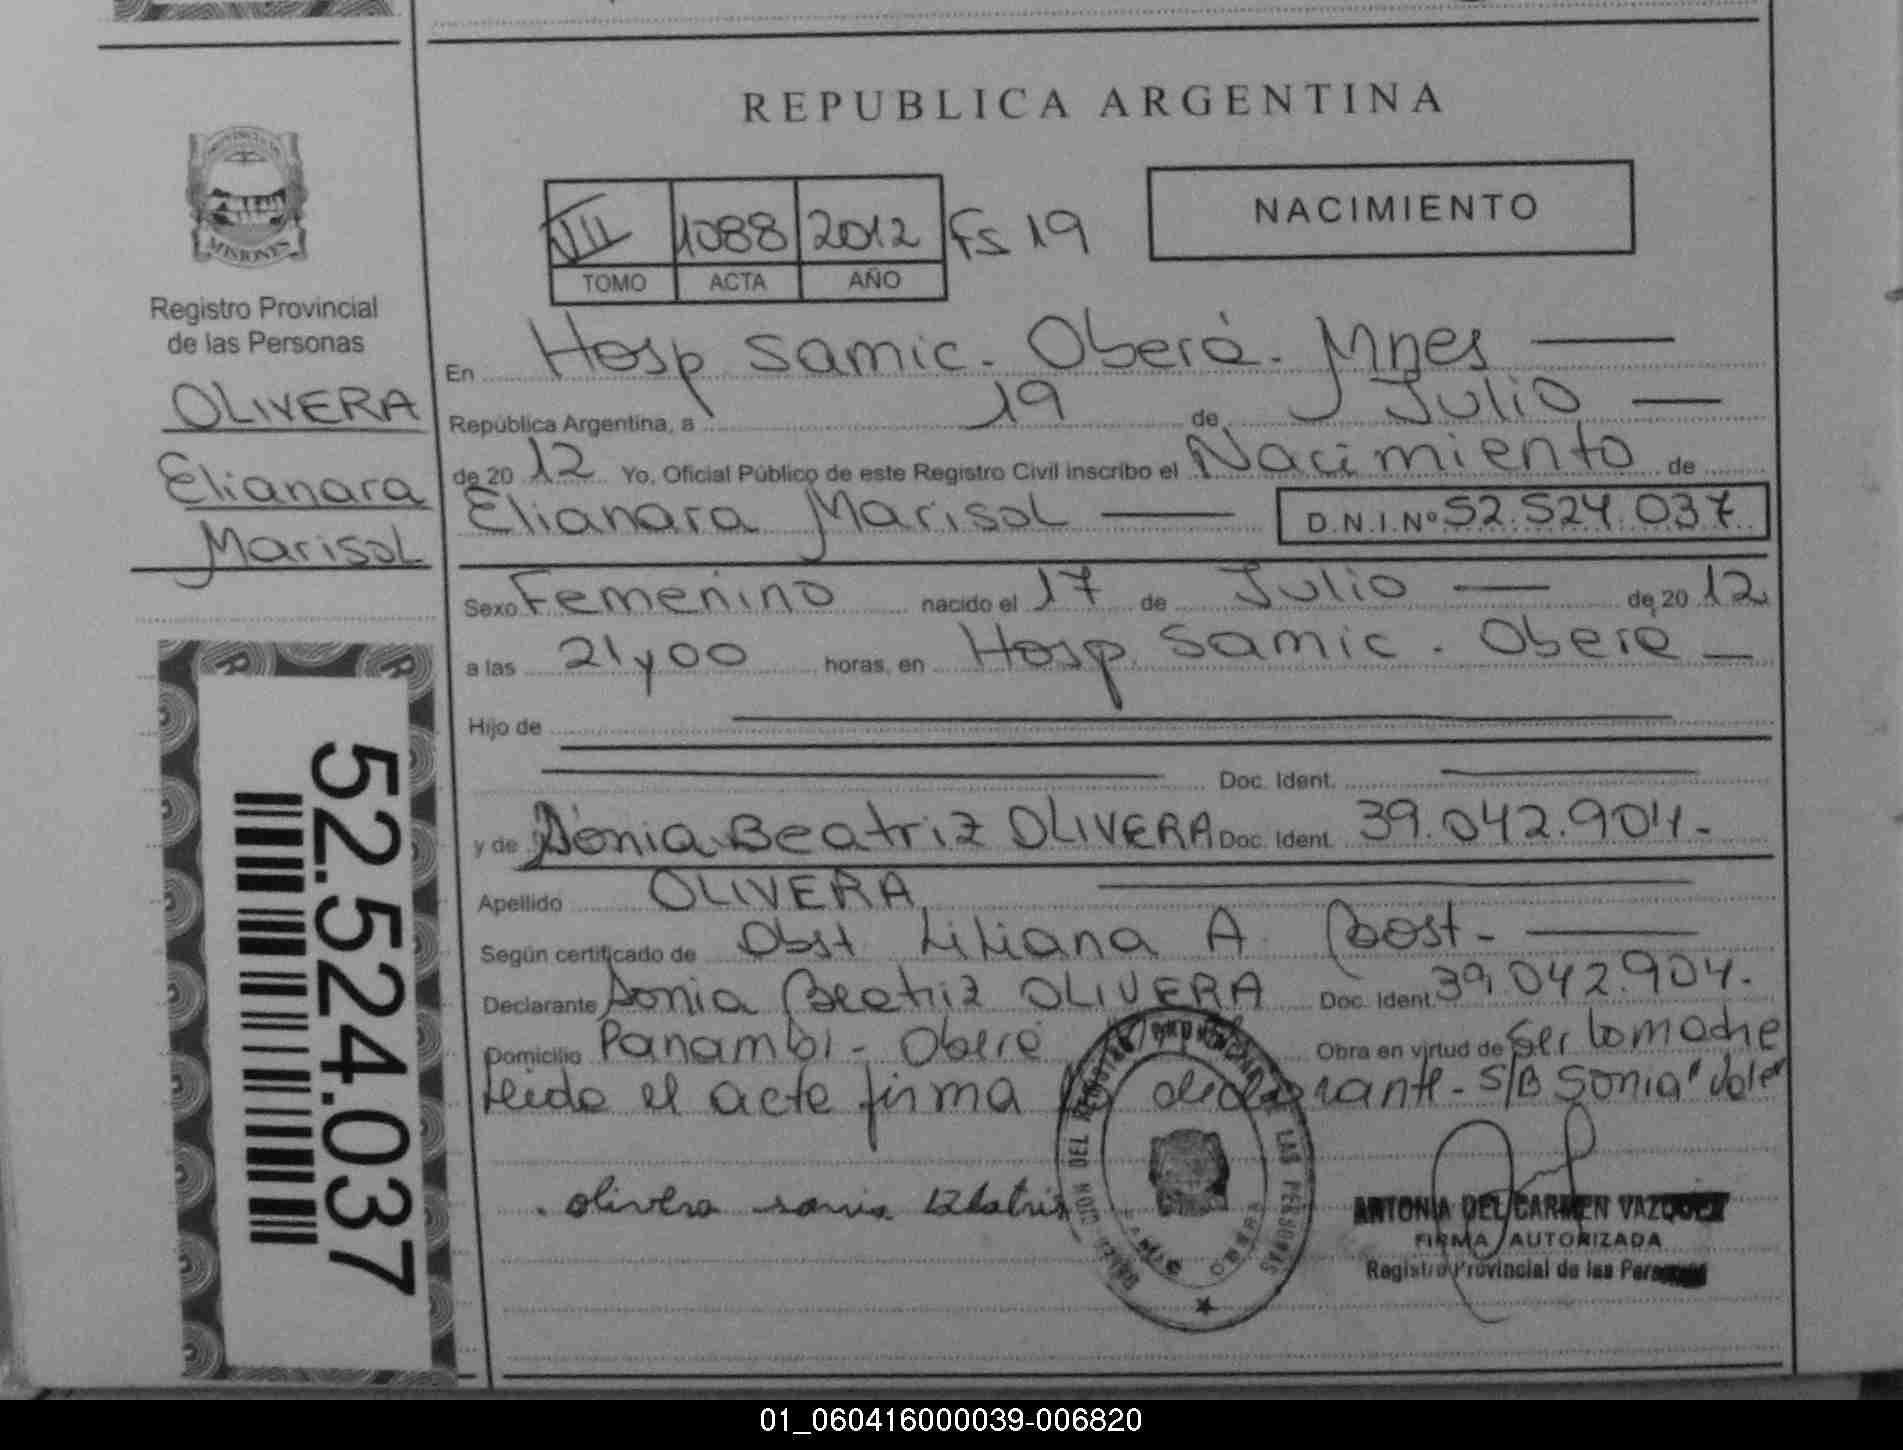 REPUBLICA ARGENTINA
PROVINCIA DE
MISIONES
Registro Provincial
de las Personas
OLIVERA
Elianara
Marisol
52.524.037
VII 1088 2012 Fs 19
TOMO ACTA AÑO
NACIMIENTO
En Hosp Samic. Oberá. Mnes
República Argentina, a 19 de Julio
de 20 12 Yo, Oficial Público de este Registro Civil inscribo el Nacimiento de
Elianara Marisol D.N.I.Nº 52.524.037
Sexo Femenino nacido el 17 de Julio de 20 12
a las 21 y 00 horas, en Hosp Samic. Oberá
Hijo de
Doc. Ident.
y de Sonia Beatriz OLIVERA Doc. Ident. 39.042.904.-
Apellido OLIVERA
Según certificado de Obst Liliana A. Bost.-
Declarante Sonia Beatriz OLIVERA Doc. Ident. 39.042.904.
Domicilio Panambi - Oberá Obra en virtud de Ser la madre
Leida el acta firma la declarante - S/B Sonia "Vale"
Olivera sonia Beatriz
DEL REGISTRO LAS PERSONAS
OBERA
ANTONIA DEL CARMEN VAZQUEZ
FIRMA AUTORIZADA
Registro Provincial de las Personas
01_060416000039-006820